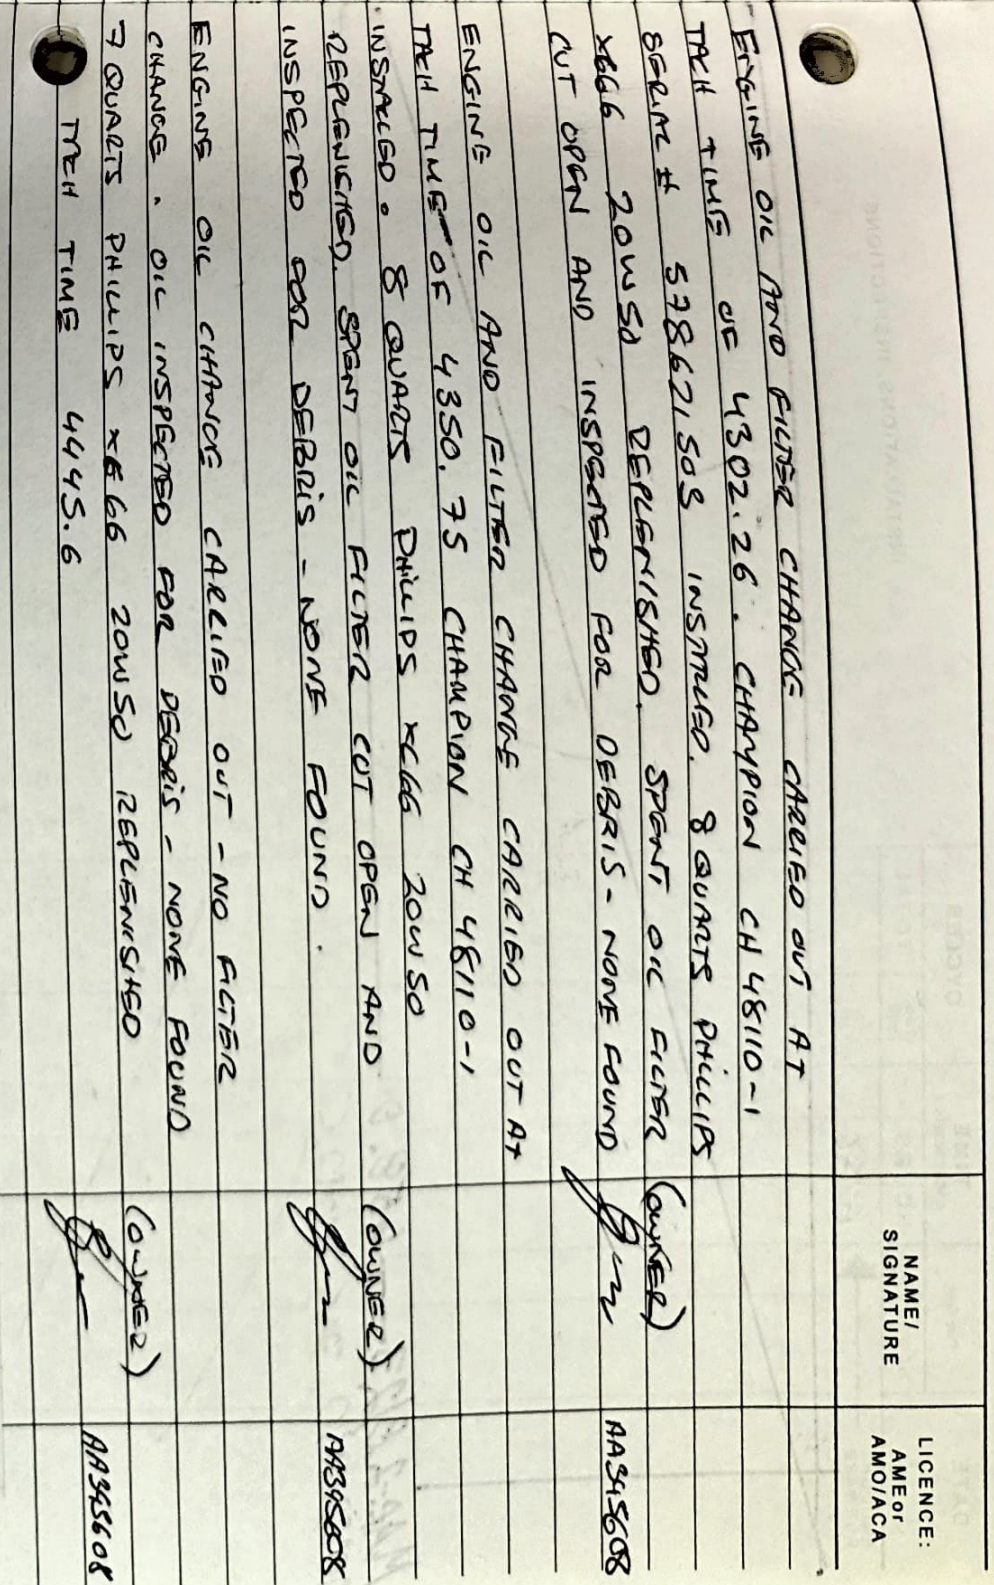 NAME/
SIGNATURE
LICENCE:
AME or
AMO/ACA
ENGINE OIL AND FILTER CHANGE CARRIED OUT AT
TACH TIME OF 4302.26. CHAMPION CH 48110-1
SERIAL # 578621503 INSTALLED. 8 QUARTS PHILLIPS
XC66 20W50 REPLENISHED. SPENT OIL FILTER (OWNER)
CUT OPEN AND INSPECTED FOR DEBRIS - NONE FOUND AA345608
ENGINE OIL AND FILTER CHANGE CARRIED OUT AT
TACH TIME OF 4350.75 CHAMPION CH 48110-1
INSTALLED. 8 QUARTS PHILLIPS XC66 20W50
REPLENISHED. SPENT OIL FILTER CUT OPEN AND (OWNER)
INSPECTED FOR DEBRIS - NONE FOUND. AA345608
ENGINE OIL CHANGE CARRIED OUT - NO FILTER
CHANGE. OIL INSPECTED FOR DEBRIS - NONE FOUND
7 QUARTS PHILLIPS XC66 20W50 REPLENISHED (OWNER)
TACH TIME 4445.6 AA345608